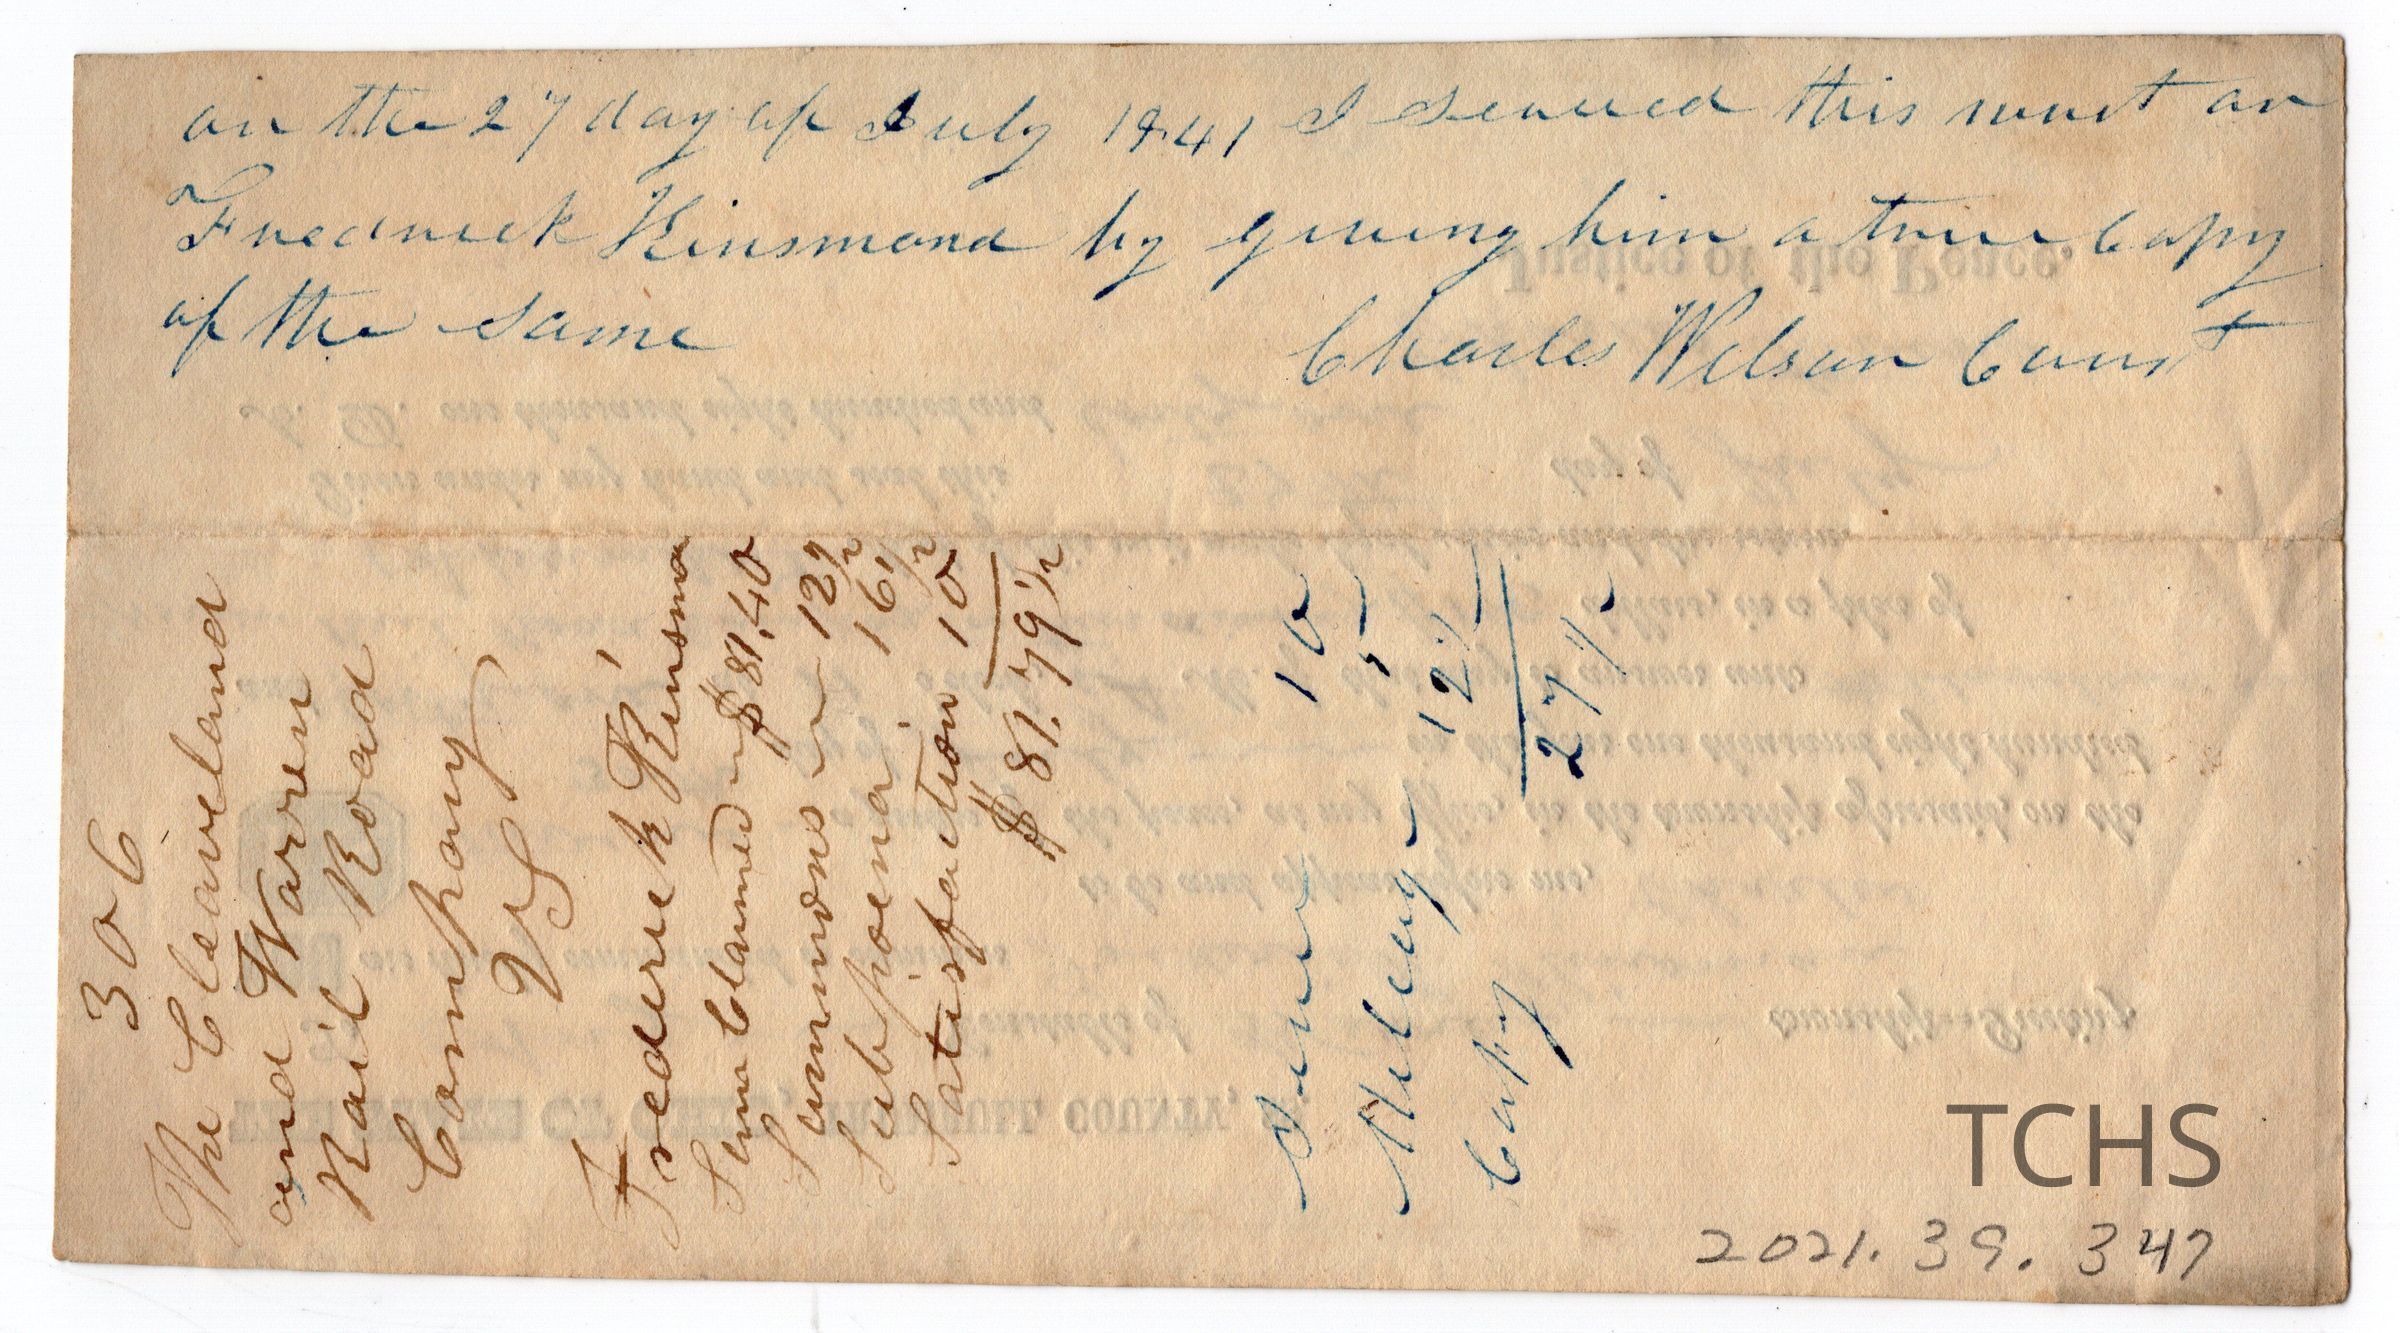 on the 27 day of July 1841 I served this writ on
Fredrick Kinsmand by giving him a true Copy
of the same
Charles Wilson Const
306
The Cleaveland
and Warren
Rail Road
Company
VS
Frederick Kinsma
Sum Claimed $81,40
Summons 12 1/2
Subpoena 16 1/2
Satisfaction 10
$81.79 1/2
Serv 10
Mileag 5
Copy 12 1/2
27 1/2
TCHS
2021.39.347